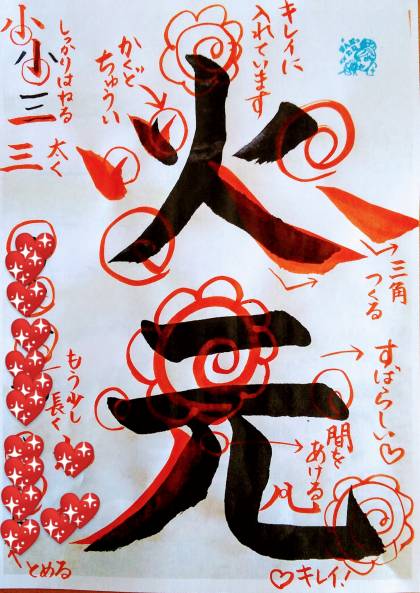 火元
小小
三
三
しっかりはねる
太く
かくど
ちゅうい
キレイに
入れています
三角
つくる
すばらしい♡
間を
あける
几
もう少し
長く
とめる
♡キレイ!